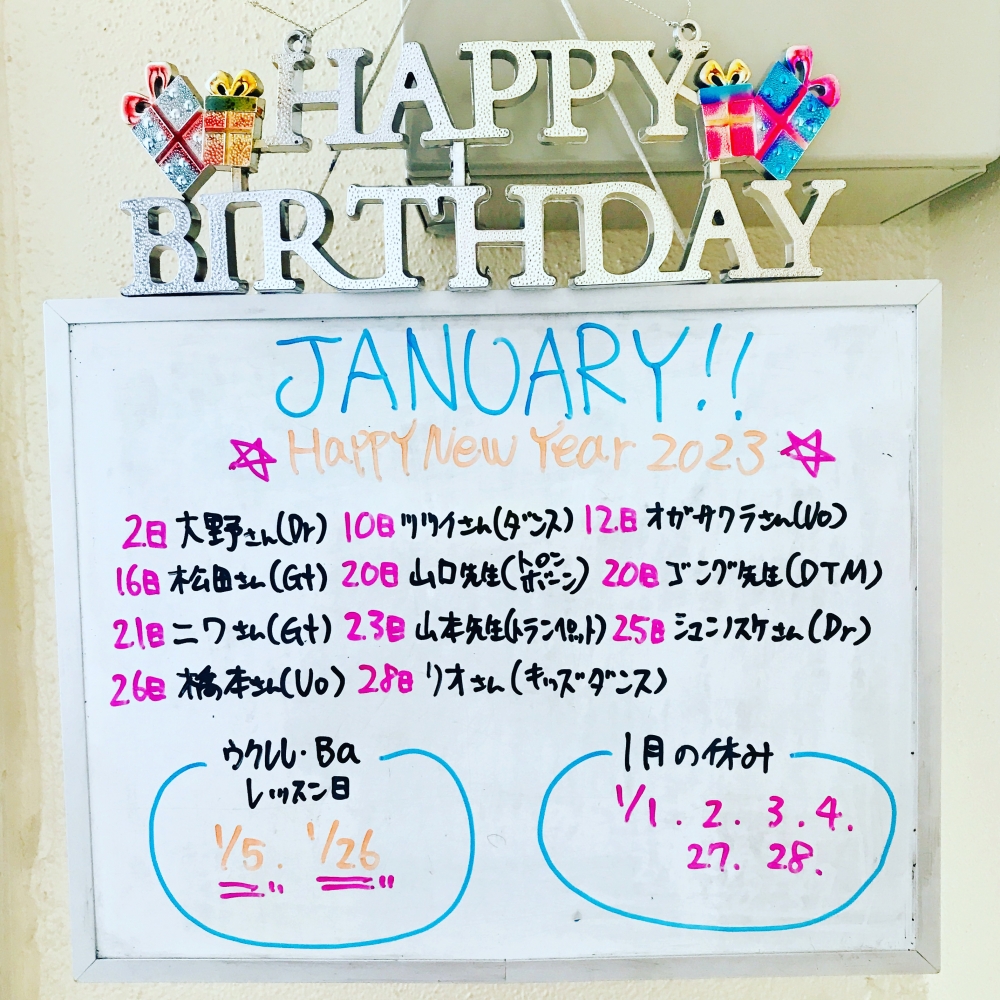 HAPPY
BIRTHDAY
JANUARY!!
☆ Happy New Year 2023 ☆
2日 大野さん(Dr) 10日 ツツイさん(ダンス) 12日 オガサワラさん(Vo)
16日 松田さん(Gt) 20日 山口先生(トロンボーン) 20日 ゴング先生(DTM)
21日 ニワさん(Gt) 23日 山本先生(トランペット) 25日 ジュンノスケさん(Dr)
26日 橋本さん(Vo) 28日 リオさん(キッズダンス)
ウクレレ・Ba
レッスン日
1/5. 1/26
1月の休み
1/1. 2. 3. 4.
27. 28.